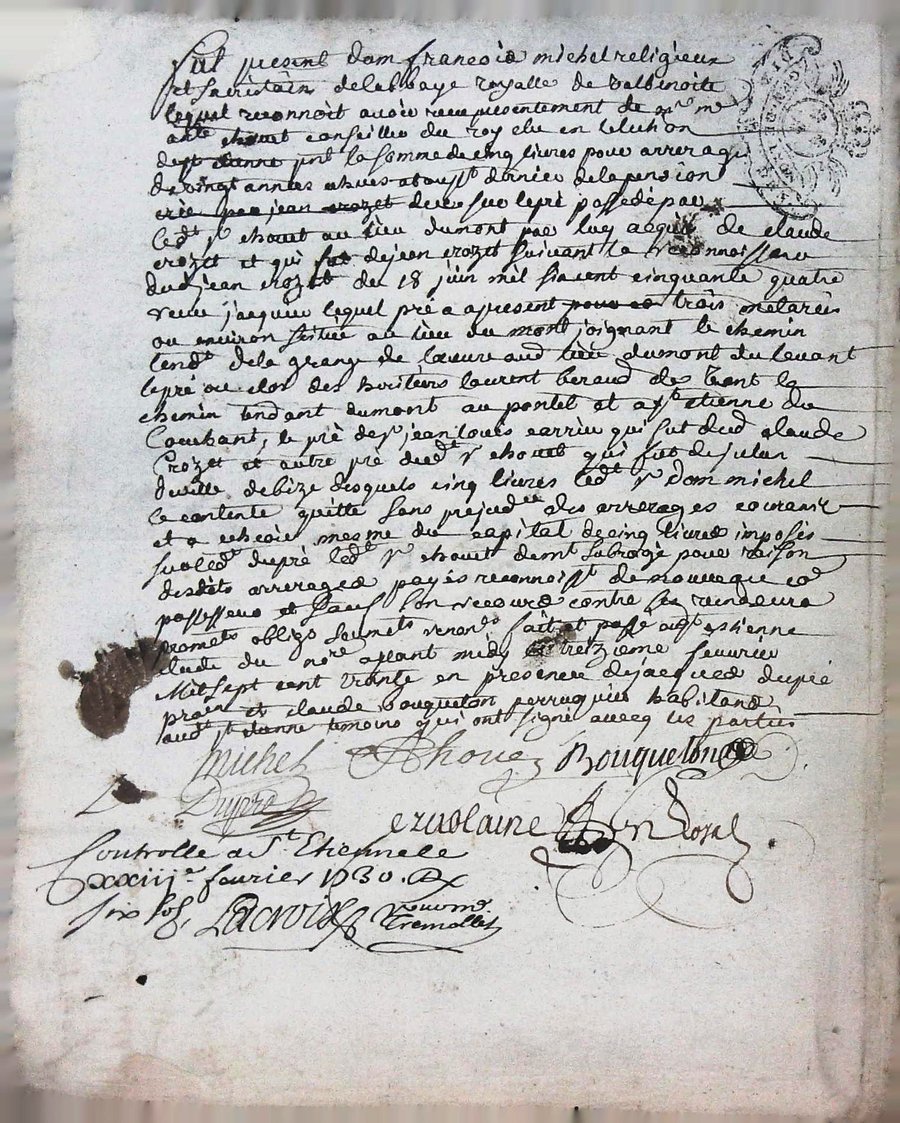 Fut present dom francois michel religieux
et secretain delabbaye royalle de valbenoite
lequel reconnoit avoir receu presentement de mr me
ante chouet conseiller du roy elu en lelection
dest etienne pnt la somme de cinq livres pour arrerages
de vingt annees echues a toust dernier de la pension
creée par jean crozet sur le pré possedé par
ledt sr chouet au lieu dumont par luy acquis de claude
crozet et qui fut de jean crozet suivant la reconnoissance
dud jean crozet du 18 juin mil six cent cinquante quatre
receu jacquier lequel pré a apresent trois metarées
ou environ scitue au lieu du mont joignant le chemin
tendt dela grange de loeuvre aud lieu dumont du levant
le pré ou clos des heritiers laurent beraud de vent le
chemin tendant dumont au pontet et a st etienne du
Couchant, le pré de sr jean louis carriu qui fut dud claude
Crozet et autre pré dudt sr chouet qui fut de julien
deville de bize desquels cinq livres ledt sr Dom michel
se contente quitte sans prejudce des arrerages courants
et a echeoir mesme du capital de cinq livres imposés
sur led dupré ledt sr chouet demt subrogé pour raison
desdits arrerages payés reconnoisst de nouveau
possesseur et sauf son recours contre les vendeurs
promets obligs soumets renonçs fait et passé a st estienne
etude du nore aplant midy treizieme fevrier
Mil sept cent trante en presence de jacques dupré
prain et claude bouqueton perruquier habitans
aud st etienne temoins qui ont signé avecq les parties
Michel Chouet Bouqueton
Dupré
Controlle a St Etienne le
xxiiie fevrier 1730. R
six sols Lacroix
Tremollet